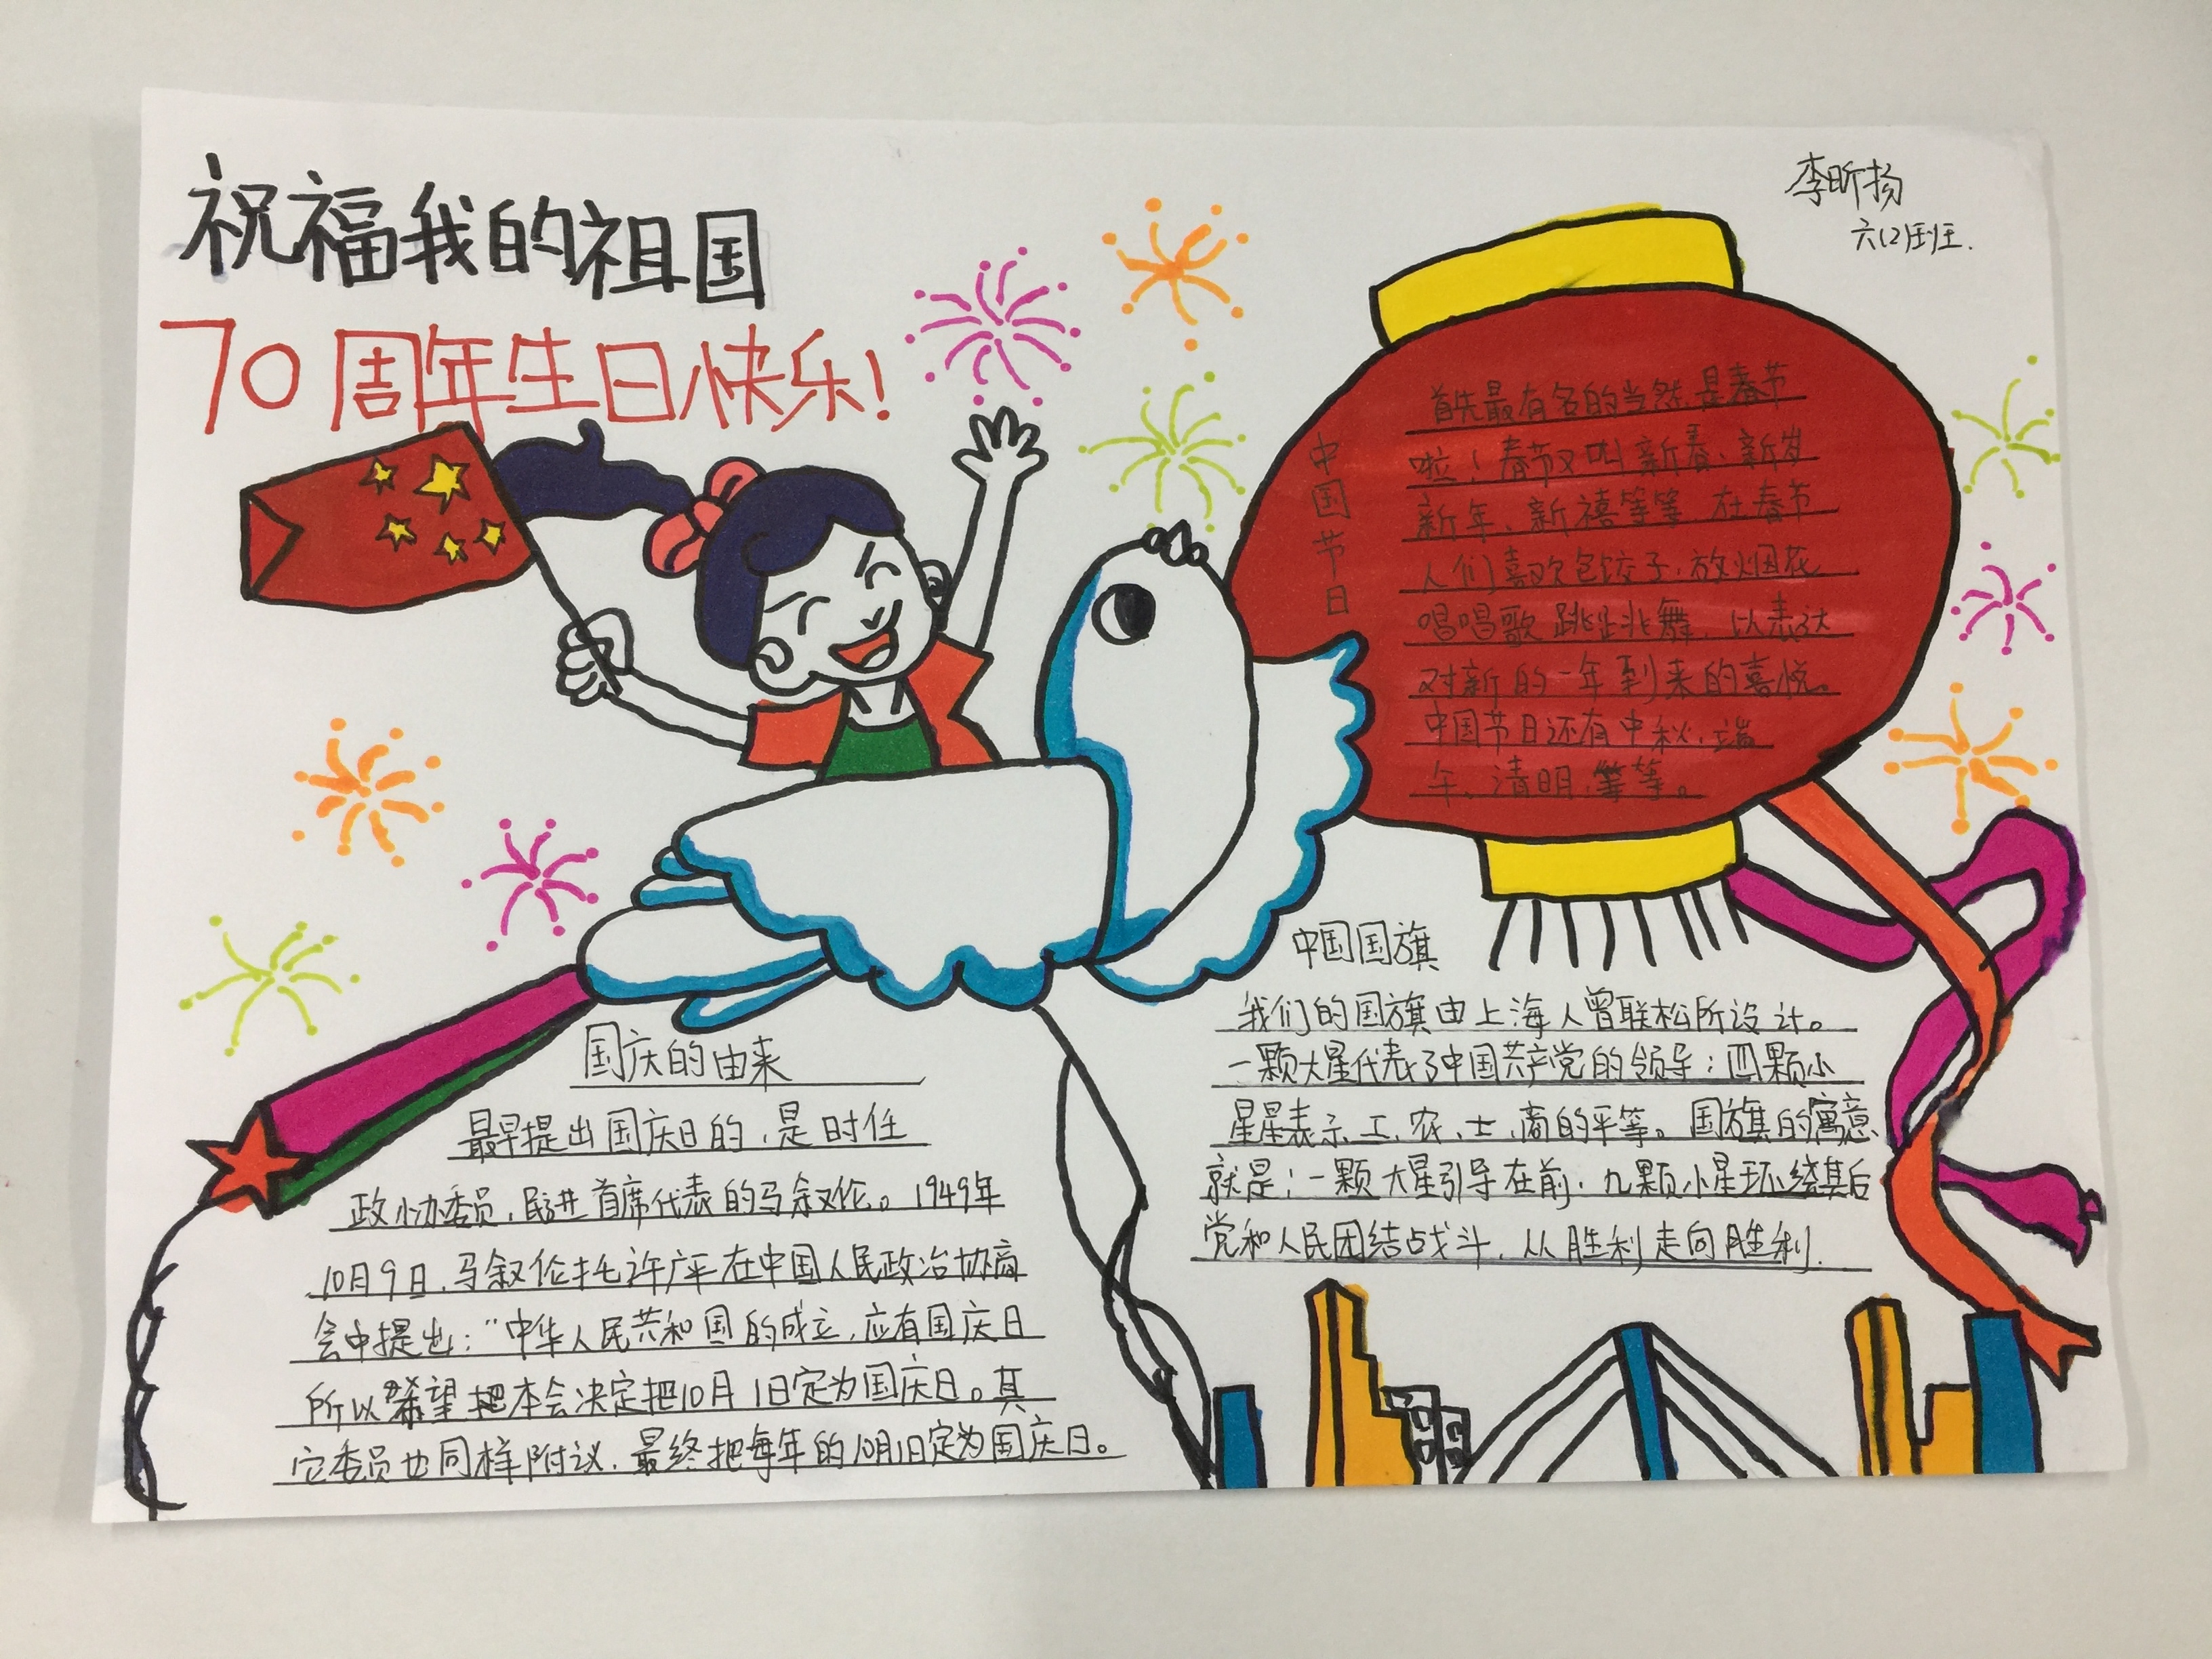 祝福我的祖国
70周年生日快乐!
李昕扬
六(2)班.
中国节日
首先最有名的当然是春节
啦!春节又叫新春、新岁
新年、新禧等等 在春节
人们喜欢包饺子,放烟花
唱唱歌 跳跳舞,以表达
对新的一年到来的喜悦。
中国节日还有中秋,端
午、清明,等等。
国庆的由来
最早提出国庆日的,是时任
政协委员,民进首席代表的马叙伦。1949年
10月9日,马叙伦托许广平在中国人民政治协商
会中提出:“中华人民共和国的成立,应有国庆日
所以希望把本会决定把10月1日定为国庆日。其
它委员也同样附议,最终把每年的10月1日定为国庆日。
中国国旗
我们的国旗由上海人曾联松所设计。
一颗大星代表了中国共产党的领导;四颗小
星星表示工、农、士、商的平等。国旗的寓意
就是:一颗大星引导在前,九颗小星环绕其后
党和人民团结战斗,从胜利走向胜利.